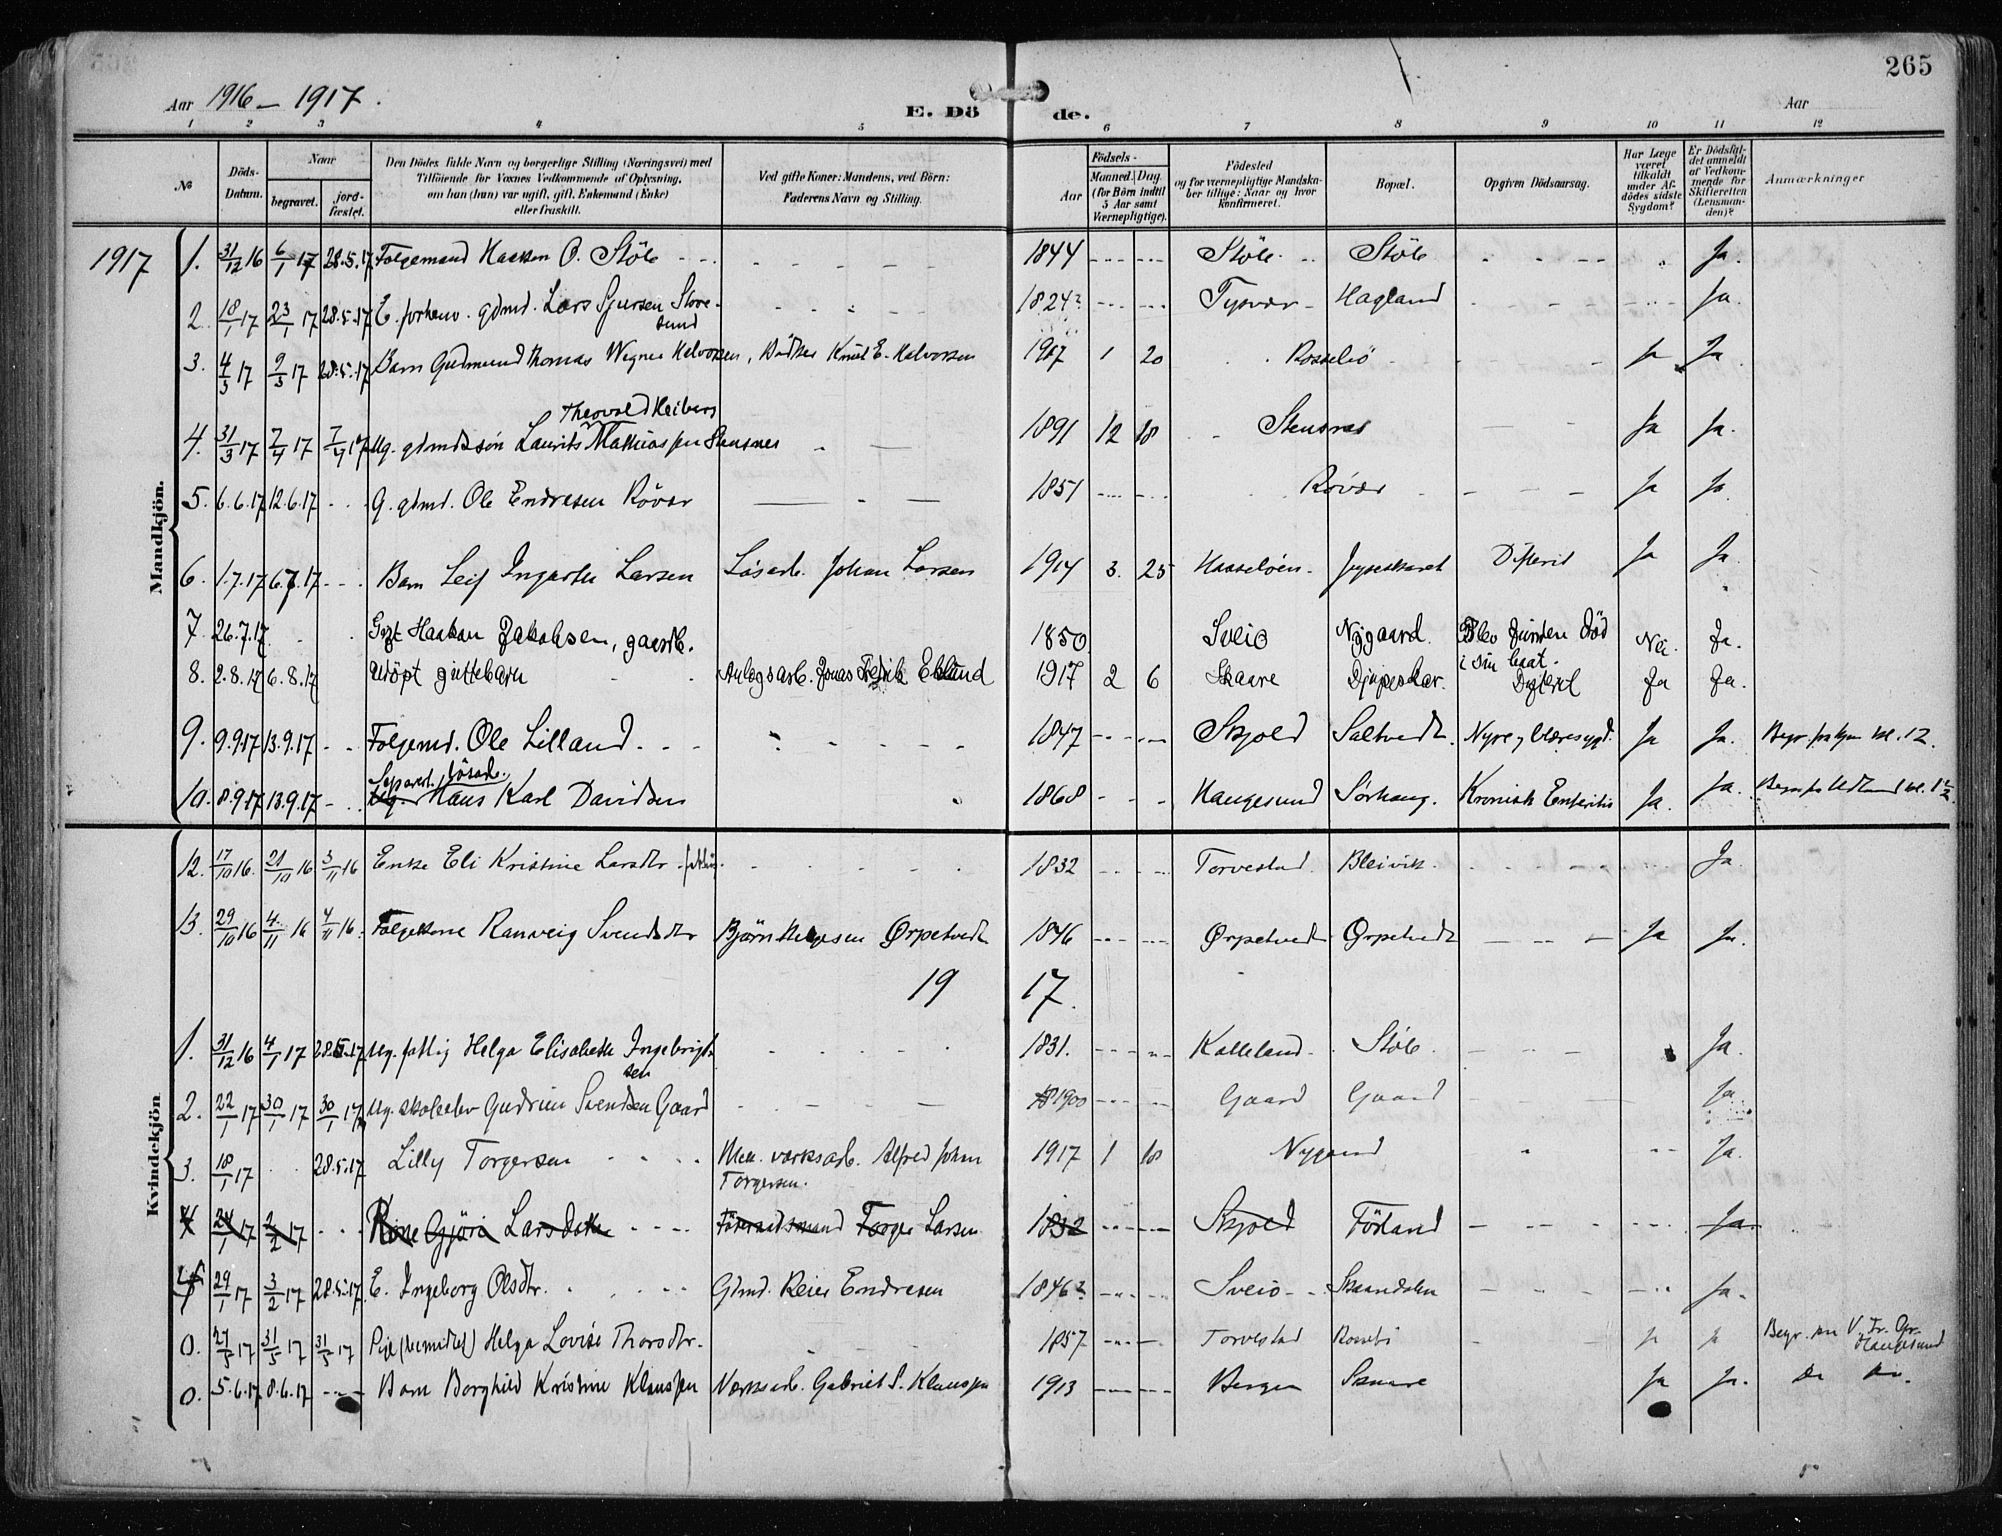 265
Aar 1916 – 1917.
E. Dö
de.
Aar
1 2 3 4 5 6 7 8 9 10 11 12
№
Döds-Datum.
Naar
begravet.
jord-fæstet.
Den Dödes fulde Navn og borgerlige Stilling (Næringsvei) med
Tilföiende for Voxnes Vedkommende af Oplysning,
om han (hun) var ugift, gift, Enkemand (Enke)
eller fraskilt.
Ved gifte Koner: Mandens, ved Börn:
Faderens Navn og Stilling.
Födsels-
Aar
Maaned. Dag
(for Börn indtil
5 Aar samt
Værnepligtige).
Födested
og for værnepligtige Mandskaber tillige: Naar og hvor
konfirmeret.
Bopæl.
Opgiven Dödsaarsag.
Har Læge
været
tilkaldt
under Afdödes sidste
Sygdom?
Er Dödsfaldet anmeldt
af Vedkommende for
Skifteretten
(Lensmanden)?
Anmærkninger
Mandkjön.
1917 1. 31/12 16 6/1 17 28.5.17 Folgemand Haaken O. Stöle 1844 Stöle Stöle Ja.
2. 18/1 17 23/1 17 28.5.17 E. forhenv. gdmd. Lars Sjursen Storesund 1824? Tysvær Hagland Ja.
3. 4/3 17 9/3 17 28.5.17 Barn Gudmund Thomas Wegner Halvorsen, Bödker Knut E. Halvorsen 1917 1 20 Rossebö Ja Ja.
4. 31/3 17 7/4 17 7/4 17 Ug. gdmdssön Laurits Theovald Heiberg Mathiassen Stensnes 1891 12 18 Stensnes Ja Ja.
5. 6.6.17 12.6.17 G. gdmd. Ole Endresen Rövær 1851 Rövær Ja Ja.
6. 1.7.17 6.7.17 Barn Leif Ingarth Larsen Lösarb. Johan Larsen 1914 3. 25 Haaselöen Difterit Ja Ja.
7. 26.7.17 Gift Haakan Jakobsen, gaardb. 1850 Sveio Nygaard. Blev funden död i sin baat. Nei. Ja.
8. 2.8.17 6.8.17 Udöpt guttebarn Anlægsarb. Jonas Fredrik Eklund 1917 2 6 Skaare Djupeskar. Ja Ja.
9. 9.9.17 13.9.17 Folgemd. Ole Lilland 1847 Skjold Saltvedt. Nyre og blæresygd. Ja Ja. kl. 12.
10. 8.9.17 13.9.17 Separert lösarb. Hans Karl Davidsen 1868 Haugesund Sörhaug. Kronisk Enteritis Ja. Ja.
Kvindekjön
12. 17/10 16. 21/10 16 3/11 16 Enke Eli Kristine Larsdtr. 1832 Torvestad Bleivik. Ja.
13. 29/10 16 4/11 16 4/11 16. Folgekone Ranveig Svendsdtr Björn Helgesen Ørpetvedt 1846 Ørpetvedt Ørpetvedt Ja Ja.
1917.
1. 31/12 16 4/1 17 28.5.17 Ug. fattig Helga Elisabeth Ingebrigtsen 1831. Kalleland Stöle Ja.
2. 22/1 17 30/1 17 30/1 17 Ug. skoleelev Gudrun Svendsen Gaard 1900 Gaard Gaard Ja
3. 18/1 17 28.5.17 Lilly Torgersen Mek. værksarb. Alfred Johan Torgersen. 1917 1 18 Nygaard Ja.
4 24/1 17 2/2 17 Kone Gjöri Larsdatter Torger Larsen 1832 Skjold Förland Ja.
4 29/1 17 3/2 17 28.5.17. E. Ingeborg Olsdtr. Gdmd. Reier Endresen 1846? Sveio Skaandalen Ja.
0. 27/5 17 31/5 17 31/5 17 Pige Helga Lovise Thorsdtr. 1857 Torvestad Ja Ja Begr. Haugesund
0. 5.6.17 8.6.17 Barn Borghild Kristine Klaussen Værksarb. Gabriel S. Klaussen 1913 Bergen Skaare Ja Ja. Do